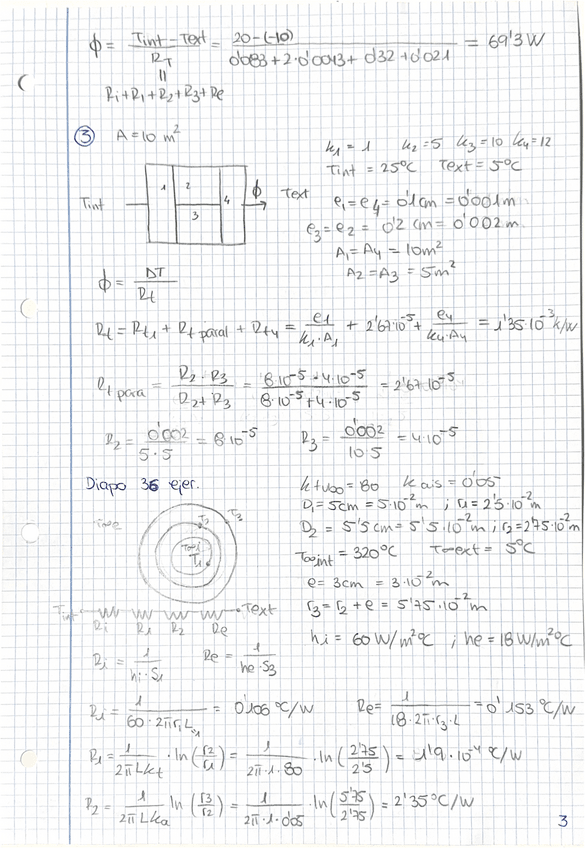 ϕ = (Tint - Text)/R_T = (20-(-10))/(0'083 + 2·0'0043 + 0'32 + 0'021) = 69'3 W
=
Ri + R1 + R2 + R3 + Re
③ A = 10 m²
k1 = 1 k2 = 5 k3 = 10 k4 = 12
Tint = 25°C Text = 5°C
Tint 1 2 3 4 ϕ Text
e1 = e4 = 0'1cm = 0'001m
e3 = e2 = 0'2 cm = 0'002 m
A1 = A4 = 10m²
A2 = A3 = 5m²
ϕ = DT/Rt
Rt = Rt1 + Rt paral + Rt4 = e1/(k1·A1) + 2'67·10⁻⁵ + e4/(k4·A4) = 1'35·10⁻³ k/W
Rt para = (R2·R3)/(R2+R3) = (8·10⁻⁵·4·10⁻⁵)/(8·10⁻⁵+4·10⁻⁵) = 2'67·10⁻⁵
R2 = 0'002/(5·5) = 8·10⁻⁵ R3 = 0'002/(10·5) = 4·10⁻⁵
Diapo 36 ejer.
k tubo = 80 k ais = 0'05
D1 = 5cm = 5·10⁻² m ; r1 = 2'5·10⁻² m
D2 = 5'5 cm = 5'5·10⁻² m ; r2 = 2'75·10⁻² m
T∞int = 320°C T∞ext = 5°C
e = 3cm = 3·10⁻² m
r3 = r2 + e = 5'75·10⁻² m
hi = 60 W/m²°C ; he = 18 W/m²°C
T3
T2
T∞i
T1
Tint Text
Ri R1 R2 Re
Ri = 1/(hi·S1) Re = 1/(he·S3)
Ri = 1/(60·2πr1L) = 0'106 °C/W Re = 1/(18·2π·r3·L) = 0'153 °C/W
R1 = 1/(2πLkt) · ln(r2/r1) = 1/(2π·1·80) · ln(2'75/2'5) = 1'9·10⁻⁴ °C/W
R2 = 1/(2πLka) ln(r3/r2) = 1/(2π·1·0'05) · ln(5'75/2'75) = 2'35 °C/W
3